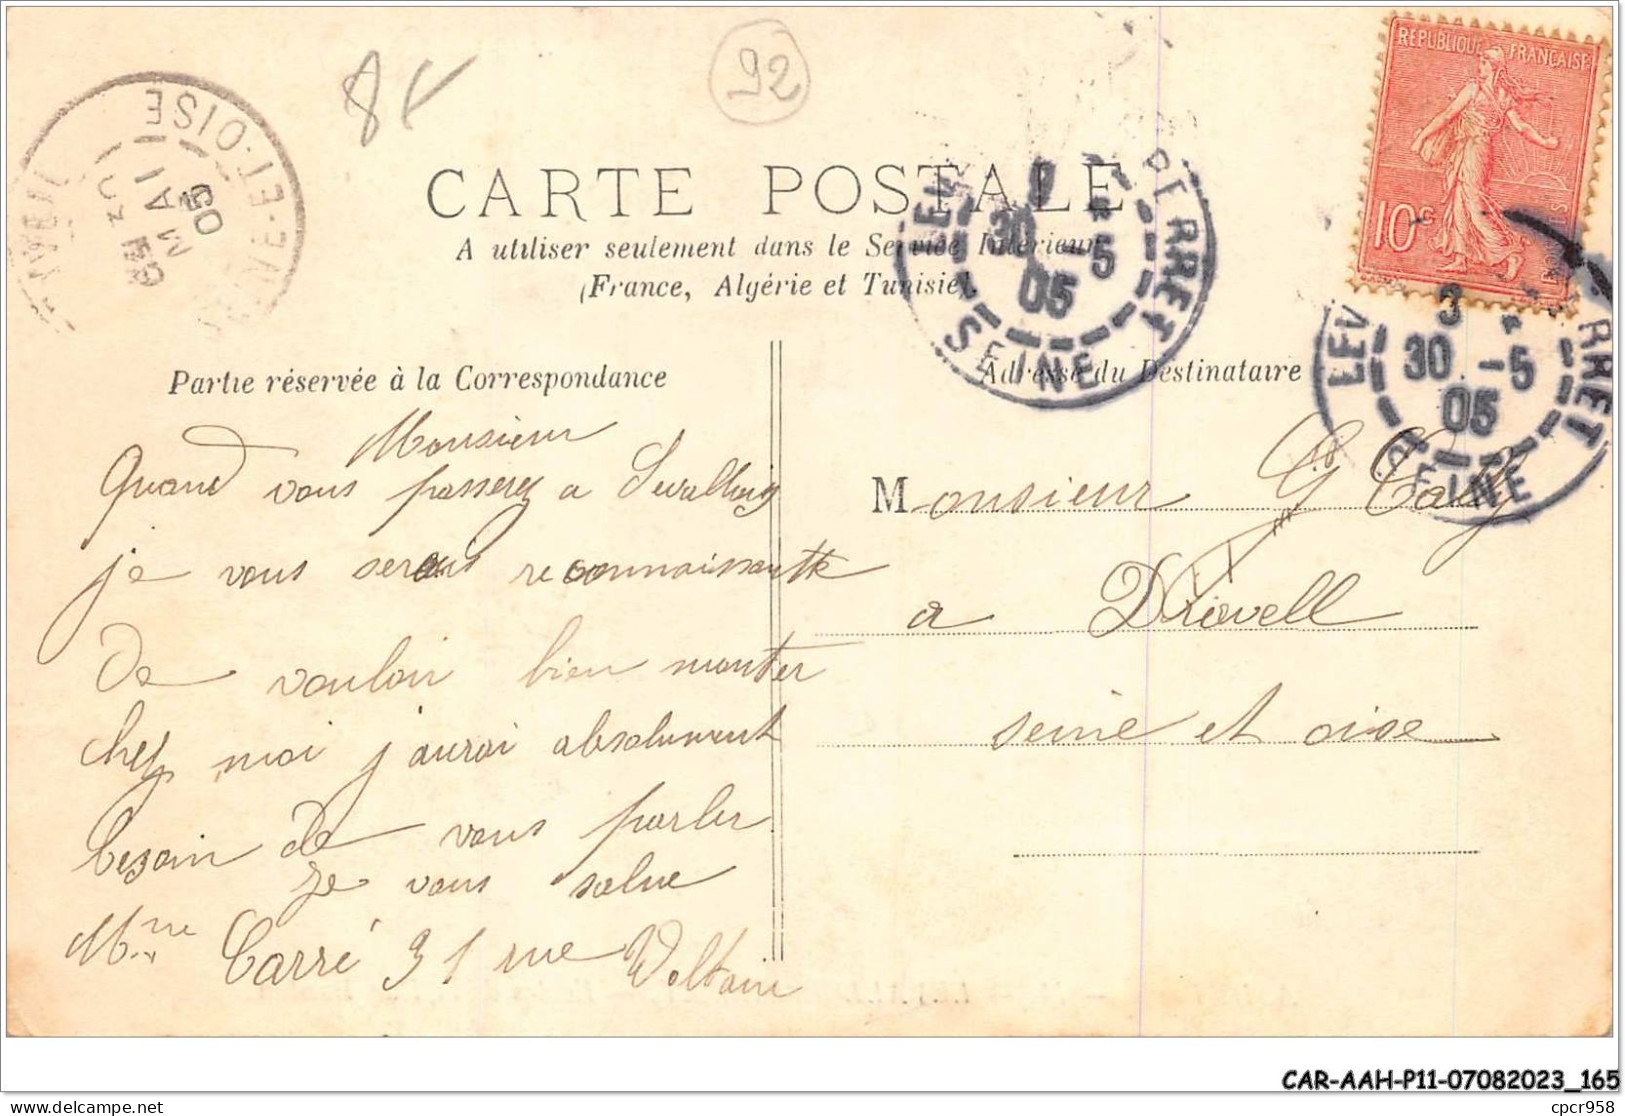 8€
92
SEINE-ET-OISE
30
MAI
05
RÉPUBLIQUE FRANÇAISE
10c
POSTES
CARTE POSTALE
A utiliser seulement dans le Service Intérieur
(France, Algérie et Tunisie).
LEV PERRET
30 -5
05
SEINE
LEV RRET
3
30 -5
05
SEINE
Partie réservée à la Correspondance
Adresse du Destinataire
Monsieur
Quand vous passerez a Levallois
je vous serais reconnaissante
de vouloir bien monter
chez moi j'aurai absolument
besoin de vous parler
Je vous salue
Mme Carré 31 rue Voltaire
Monsieur G
a
seine et oise
CAR-AAH-P11-07082023_165
delcampe.net
cpcr958